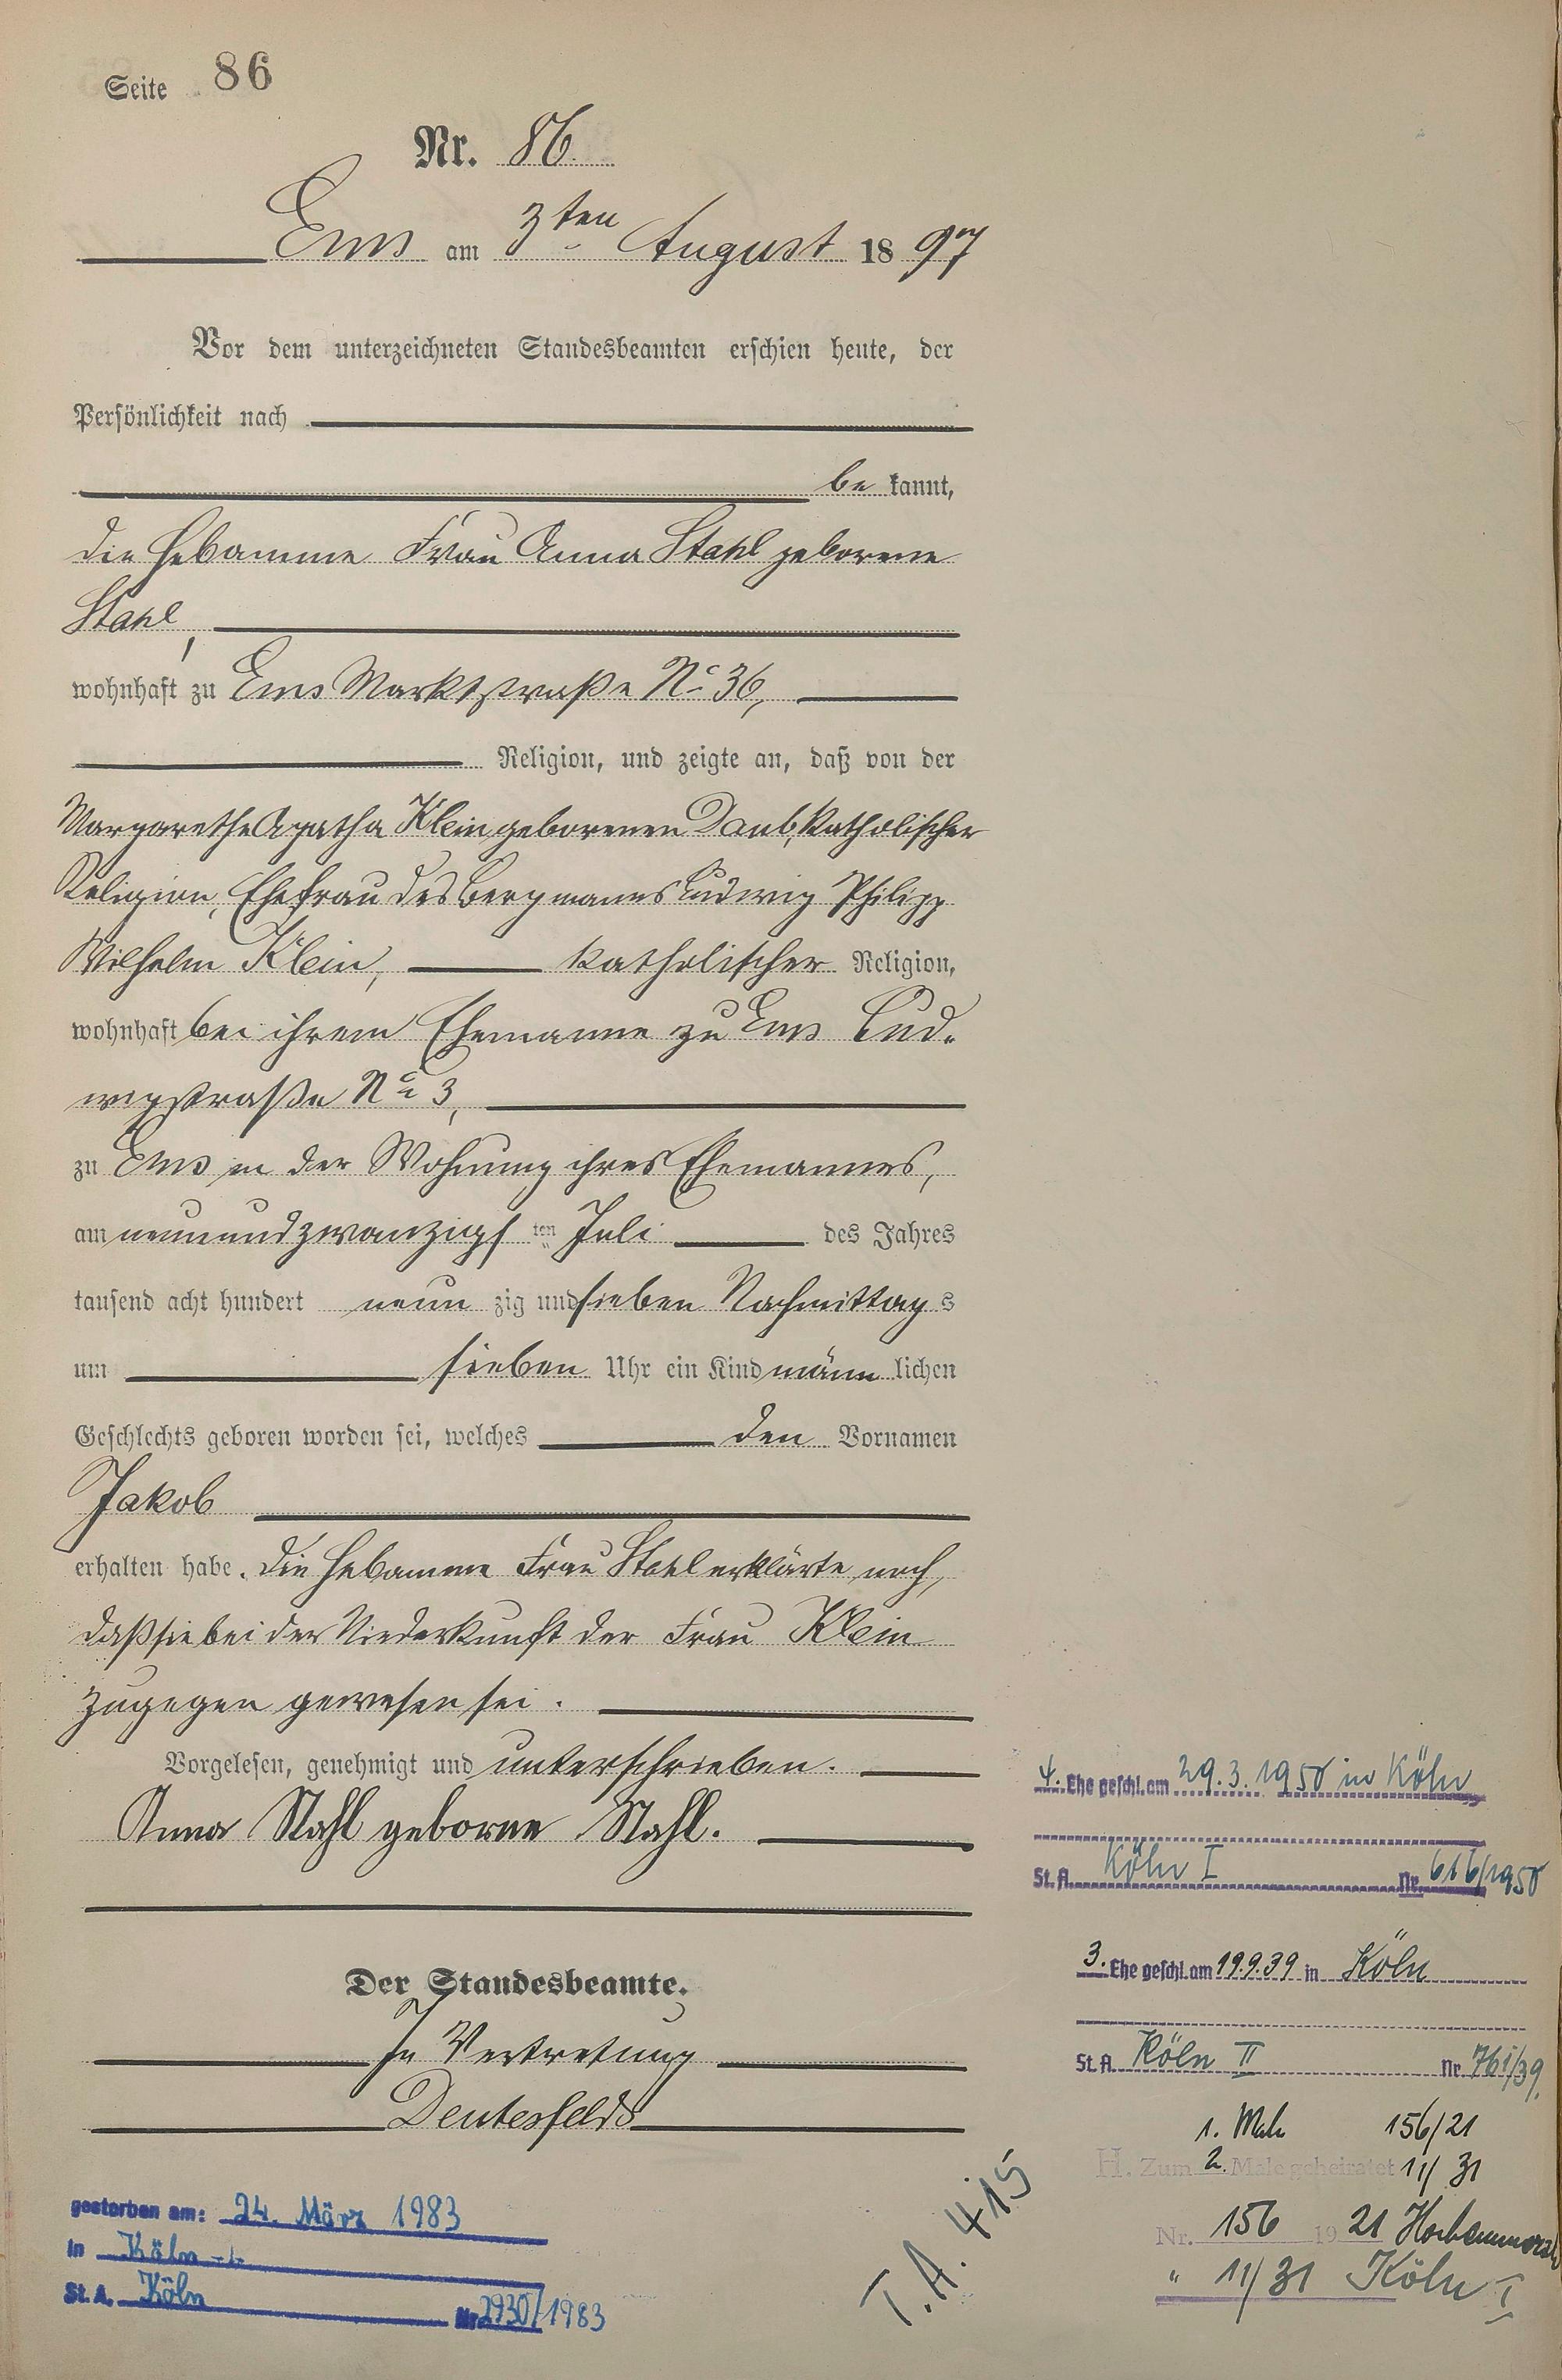 Seite 86
Nr. 86.
Ems am 3ten August 1897
Vor dem unterzeichneten Standesbeamten erschien heute, der
Persönlichkeit nach
be kannt,
die Hebamme Frau Anna Stahl geborene
Stahl,
wohnhaft zu Ems Marktstraße No 36,
Religion, und zeigte an, daß von der
Margarethe Agatha Klein geborenen Daub, katholischer
Religion, Ehefrau des Bergmanns Ludwig Philipp
Wilhelm Klein, katholischer Religion,
wohnhaft bei ihrem Ehemanne zu Ems Lud-
wigstraße No 3,
zu Ems in der Wohnung ihres Ehemannes,
am neunundzwanzigsten Juli des Jahres
tausend acht hundert neun zig und sieben Nachmittag s
um sieben Uhr ein Kind männ lichen
Geschlechts geboren worden sei, welches den Vornamen
Jakob
erhalten habe. Die Hebamme Frau Stahl erklärte noch,
daß sie bei der Niederkunft der Frau Klein
zugegen gewesen sei.
Vorgelesen, genehmigt und unterschrieben.
Anna Stahl geborne Stahl.
Der Standesbeamte.
In Vertretung
Deutesfelds
gestorben am: 24. März 1983
in Köln
St. A. Köln Nr. 2930/1983
T.A. 415
4. Ehe geschl. am 29.3.1950 in Köln
St. A. Köln I Nr. 616/1950
3. Ehe geschl. am 19.9.39 in Köln
St. A. Köln II Nr. 761/39.
1. Male 156/21
H. Zum 2. Male geheiratet 11/31
Nr. 156 1921
" 11/31 Köln I